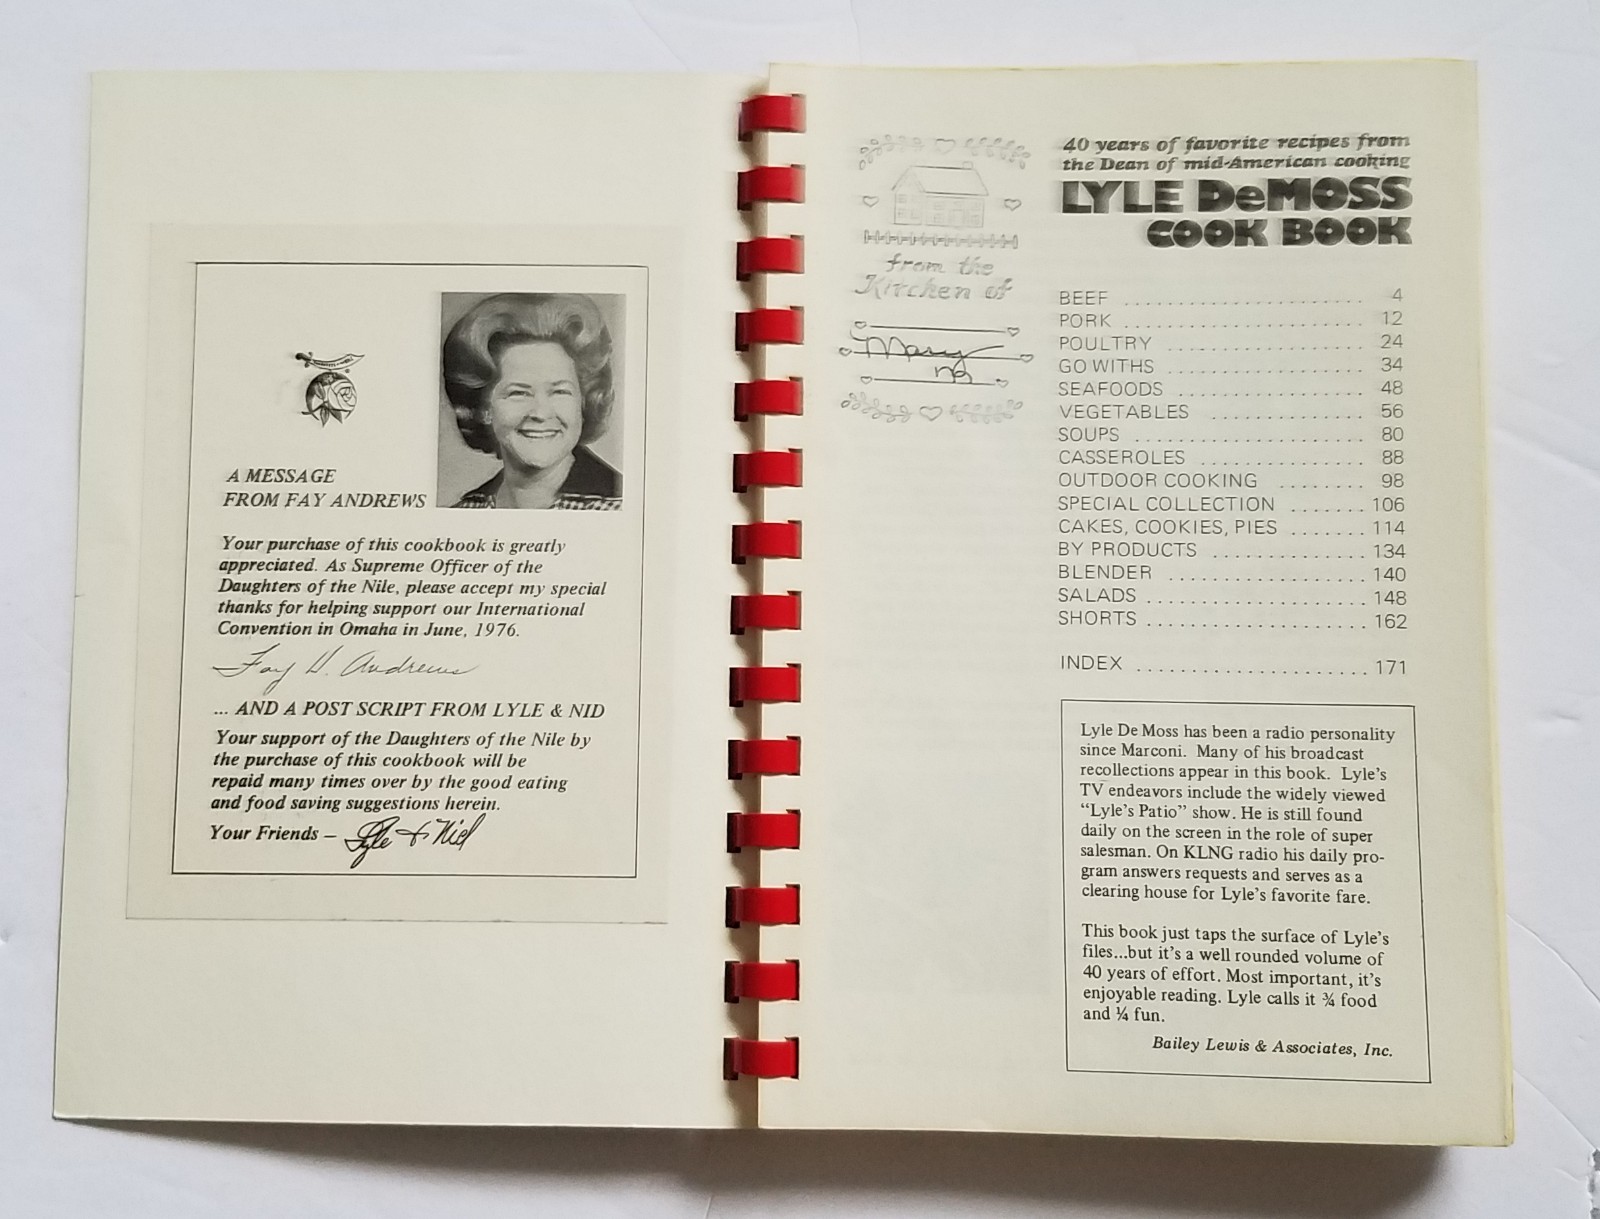 A MESSAGE
FROM FAY ANDREWS
Your purchase of this cookbook is greatly
appreciated. As Supreme Officer of the
Daughters of the Nile, please accept my special
thanks for helping support our International
Convention in Omaha in June, 1976.
Fay H. Andrews
... AND A POST SCRIPT FROM LYLE & NID
Your support of the Daughters of the Nile by
the purchase of this cookbook will be
repaid many times over by the good eating
and food saving suggestions herein.
Your Friends – Lyle + Nid
from the
Kitchen of
Mary
40 years of favorite recipes from
the Dean of mid-American cooking
LYLE DeMOSS
COOK BOOK
BEEF ........................ 4
PORK ........................ 12
POULTRY .................... 24
GO WITHS .................... 34
SEAFOODS ................... 48
VEGETABLES ................ 56
SOUPS ....................... 80
CASSEROLES ................. 88
OUTDOOR COOKING ........ 98
SPECIAL COLLECTION ....... 106
CAKES, COOKIES, PIES ....... 114
BY PRODUCTS ................ 134
BLENDER .................... 140
SALADS ...................... 148
SHORTS ...................... 162
INDEX ....................... 171
Lyle De Moss has been a radio personality
since Marconi. Many of his broadcast
recollections appear in this book. Lyle's
TV endeavors include the widely viewed
"Lyle's Patio" show. He is still found
daily on the screen in the role of super
salesman. On KLNG radio his daily pro-
gram answers requests and serves as a
clearing house for Lyle's favorite fare.
This book just taps the surface of Lyle's
files...but it's a well rounded volume of
40 years of effort. Most important, it's
enjoyable reading. Lyle calls it ¾ food
and ¼ fun.
Bailey Lewis & Associates, Inc.